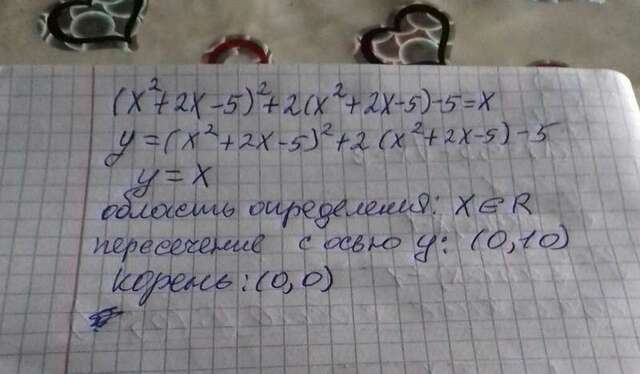 (x²+2x-5)²+2(x²+2x-5)-5=x
y=(x²+2x-5)²+2(x²+2x-5)-5
y=x
область определения: x∈R
пересечение с осью y: (0,10)
корень:(0,0)